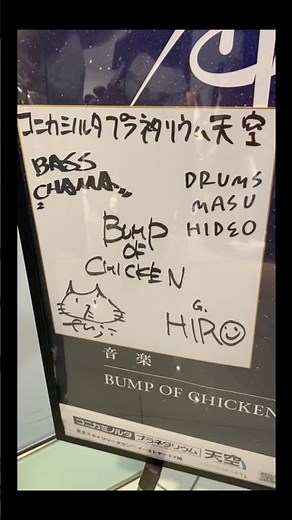 コニカミノルタプラネタリウム天空
BASS
CHAMA
DRUMS
MASU
HIDEO
BUMP
OF
CHICKEN
G.
HIRO
音楽
BUMP OF CHICKEN
コニカミノルタ プラネタリウム 天空